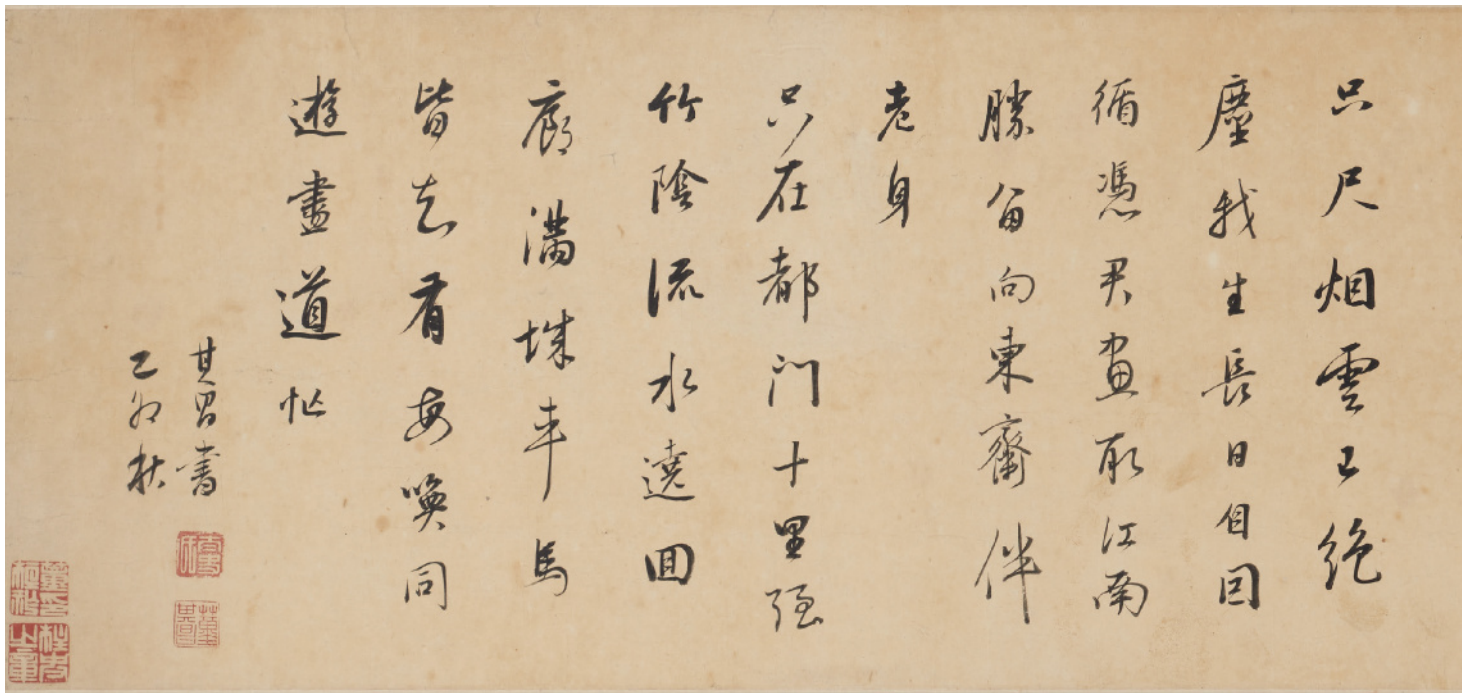 只尺烟雲已絕
塵我生長日自因
循憑君畫取江南
勝留向東齋伴
老身
只在都門十里强
竹陰流水遶回
廊滿城車馬
皆知有每喚同
遊盡道忙
其昌書
乙卯秋